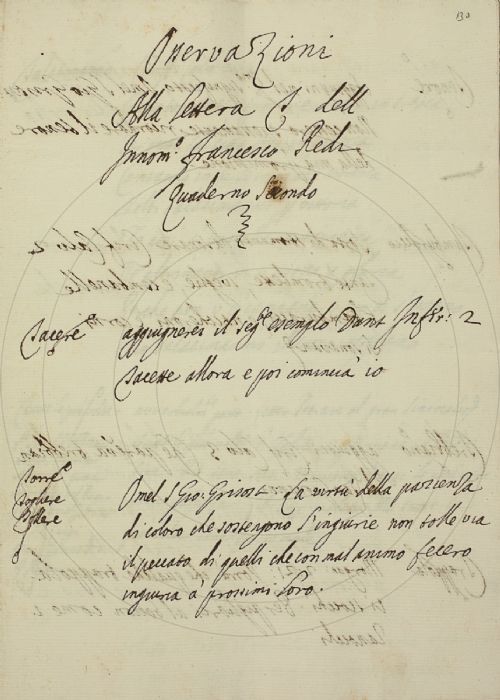 130
Osservazioni
Alla lettera T dell
Innom.º Francesco Redi
Quaderno Secondo
Tacere aggiugnerei il seg.e esemplo Dant Inf: 2
Tacette allora e poi comincia' io
Torre
Togliere
Tollere
Omel S Gio: Grisost La virtù della pazienza
di coloro che sostengono l'ingiurie non tolle via
il peccato di quelli che con mal animo fecero
ingiuria a prossimi loro.